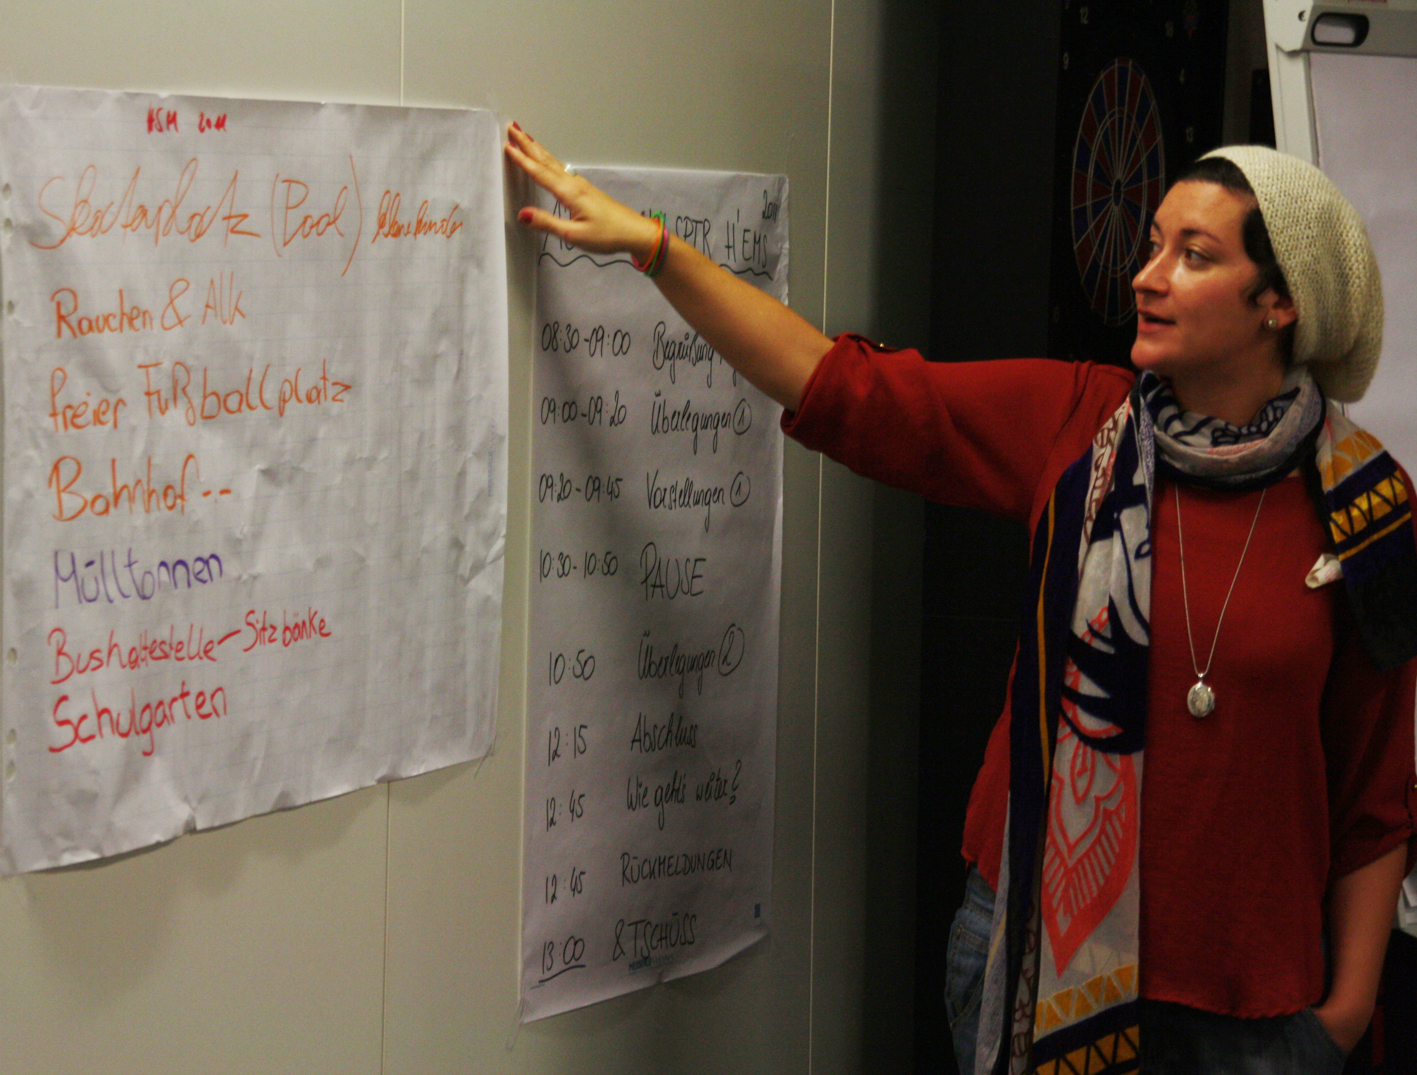 HSM 2011
Skaterplatz (Pool)
Rauchen & Alk
freier Fußballplatz
Bahnhof--
Mülltonnen
Bushaltestelle-Sitzbänke
Schulgarten
SPTR H'EMS
08:30-09:00 Begrüßung
09:00-09:20 Überlegungen 1
09:20-09:45 Vorstellungen 1
10:30-10:50 PAUSE
10:50 Überlegungen 2
12:15 Abschluss
12:45 Wie geht's weiter?
12:45 RÜCKMELDUNGEN
13:00 & TSCHÜSS